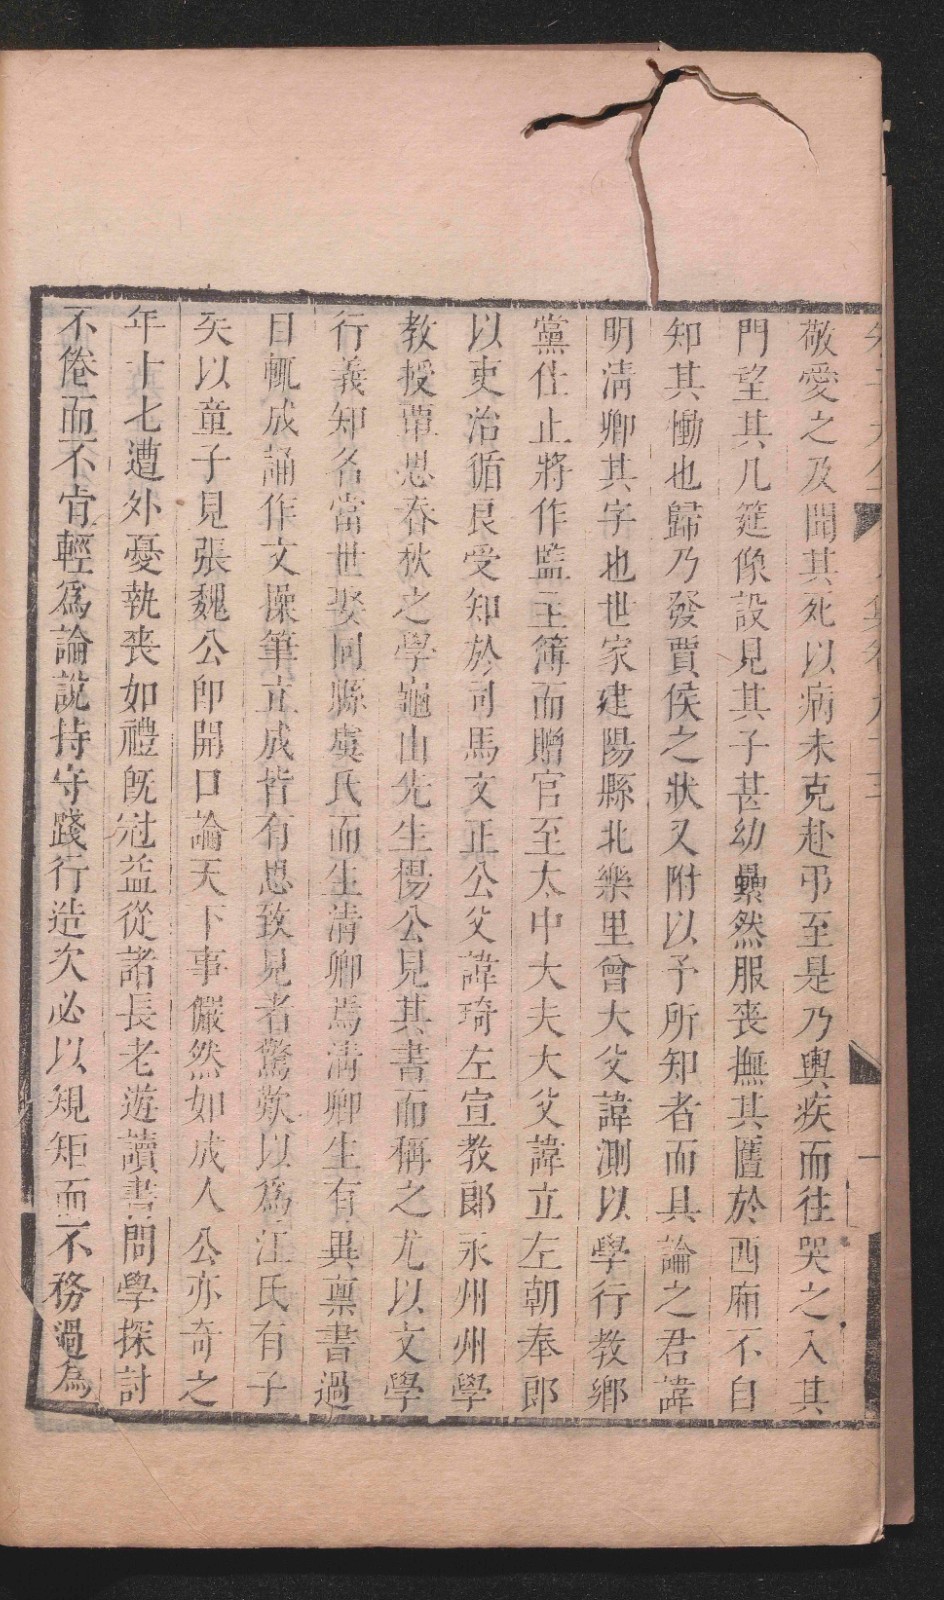 敬愛之及聞其死以病未克赴弔至是乃輿疾而往哭之入其
門望其几筵像設見其子甚幼纍然服喪撫其匶於西廂不自
知其慟也歸乃發賈侯之狀又附以予所知者而具論之君諱
明淸卿其字也世家建陽縣北樂里曾大父諱測以學行教鄉
黨仕止將作監主簿而贈官至太中大夫大父諱立左朝奉郎
以吏治循良受知於司馬文正公父諱琦左宣教郎永州州學
教授覃思春秋之學龜山先生楊公見其書而稱之尤以文學
行義知名當世娶同縣虞氏而生淸卿焉淸卿生有異禀書過
目輒成誦作文操筆立成皆有思致見者驚歎以爲江氏有子
矣以童子見張魏公卽開口論天下事儼然如成人公亦奇之
年十七遭外憂執喪如禮旣冠益從諸長老遊讀書問學探討
不倦而不肯輕爲論說持守踐行造次必以規矩而不務過爲